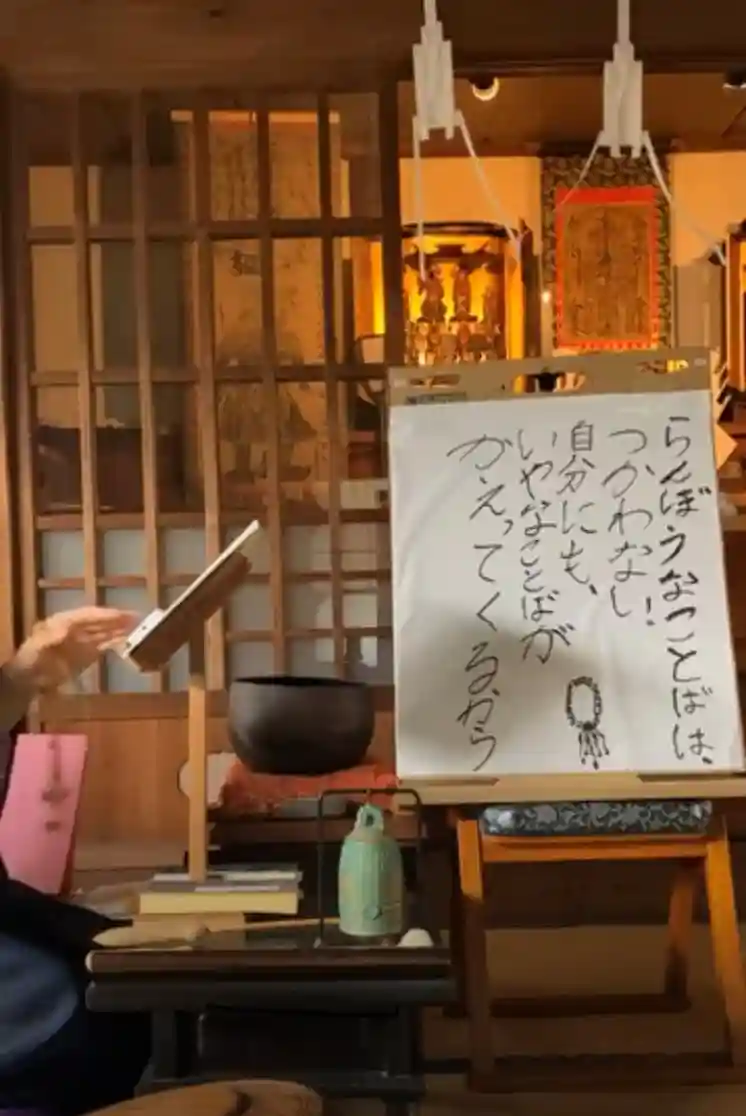 らんぼうなことばは、
つかわなし!
自分にも、
いやなことばが
かえってくるから